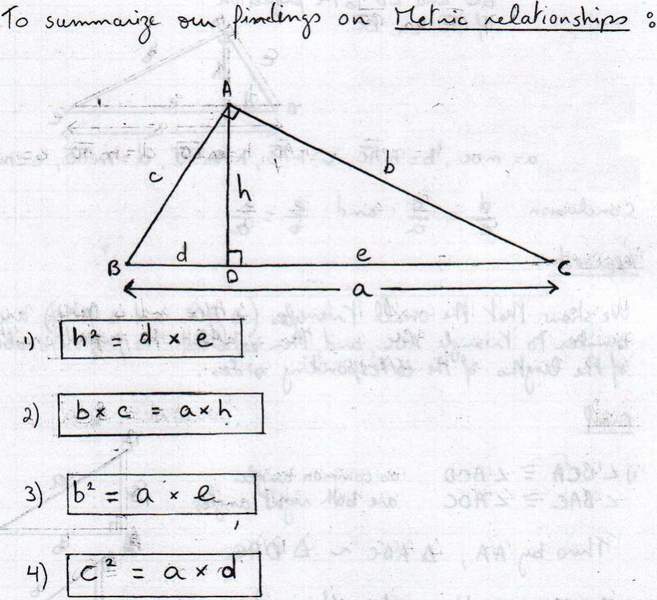 To summarize our findings on Metric relationships :
A
c
b
h
B
d
D
e
C
a
1) h² = d × e
2) b × c = a × h
3) b² = a × e
4) c² = a × d